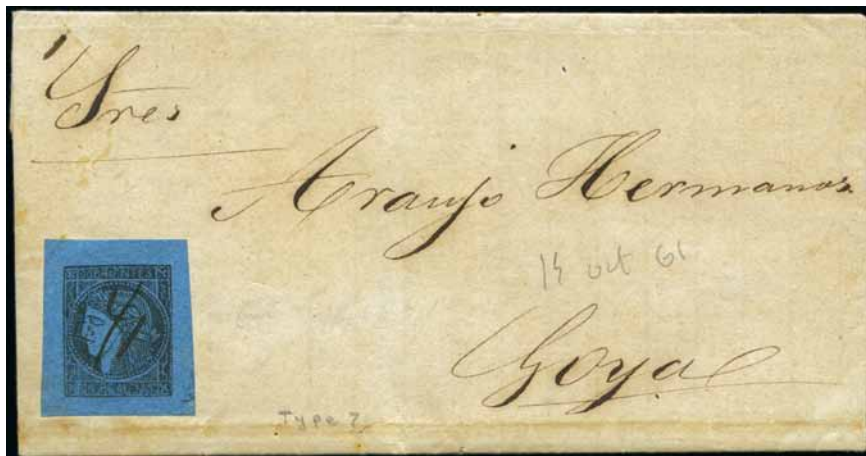 Sres
Araujo Hermanos
14 oct 61
Goya
CORRIENTES
Type 7